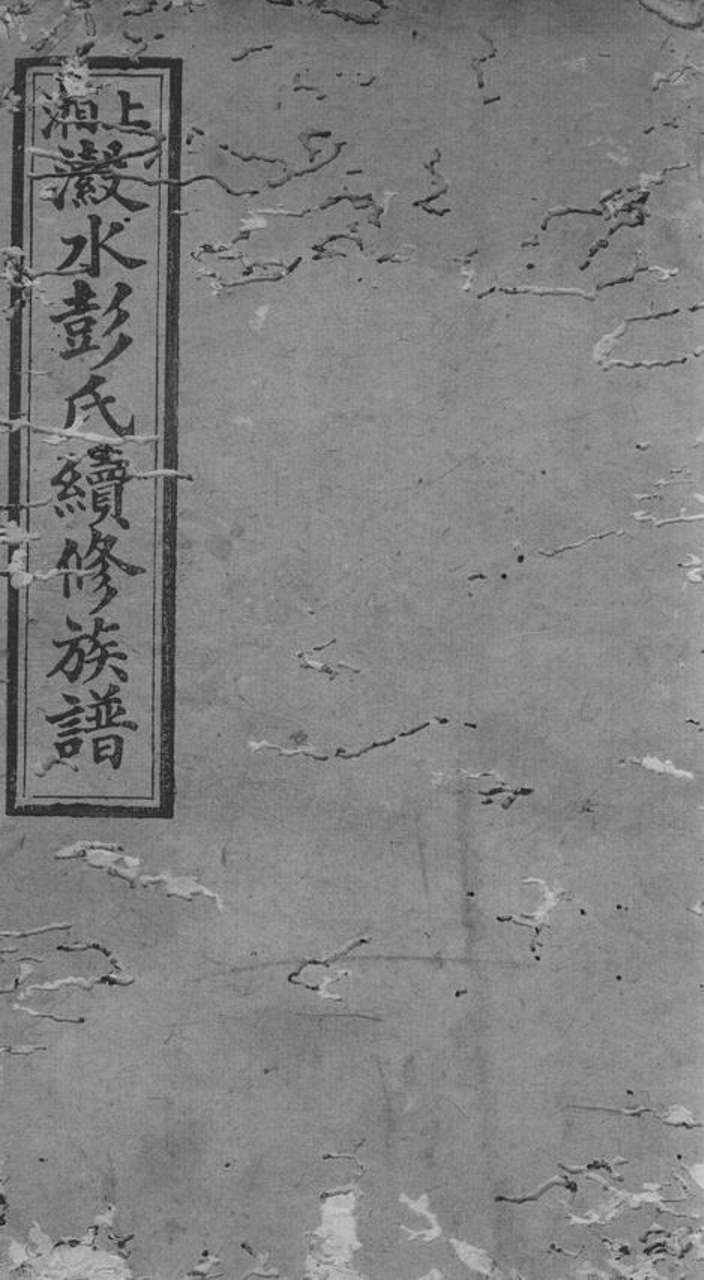 上湘
瀫水彭氏續修族譜